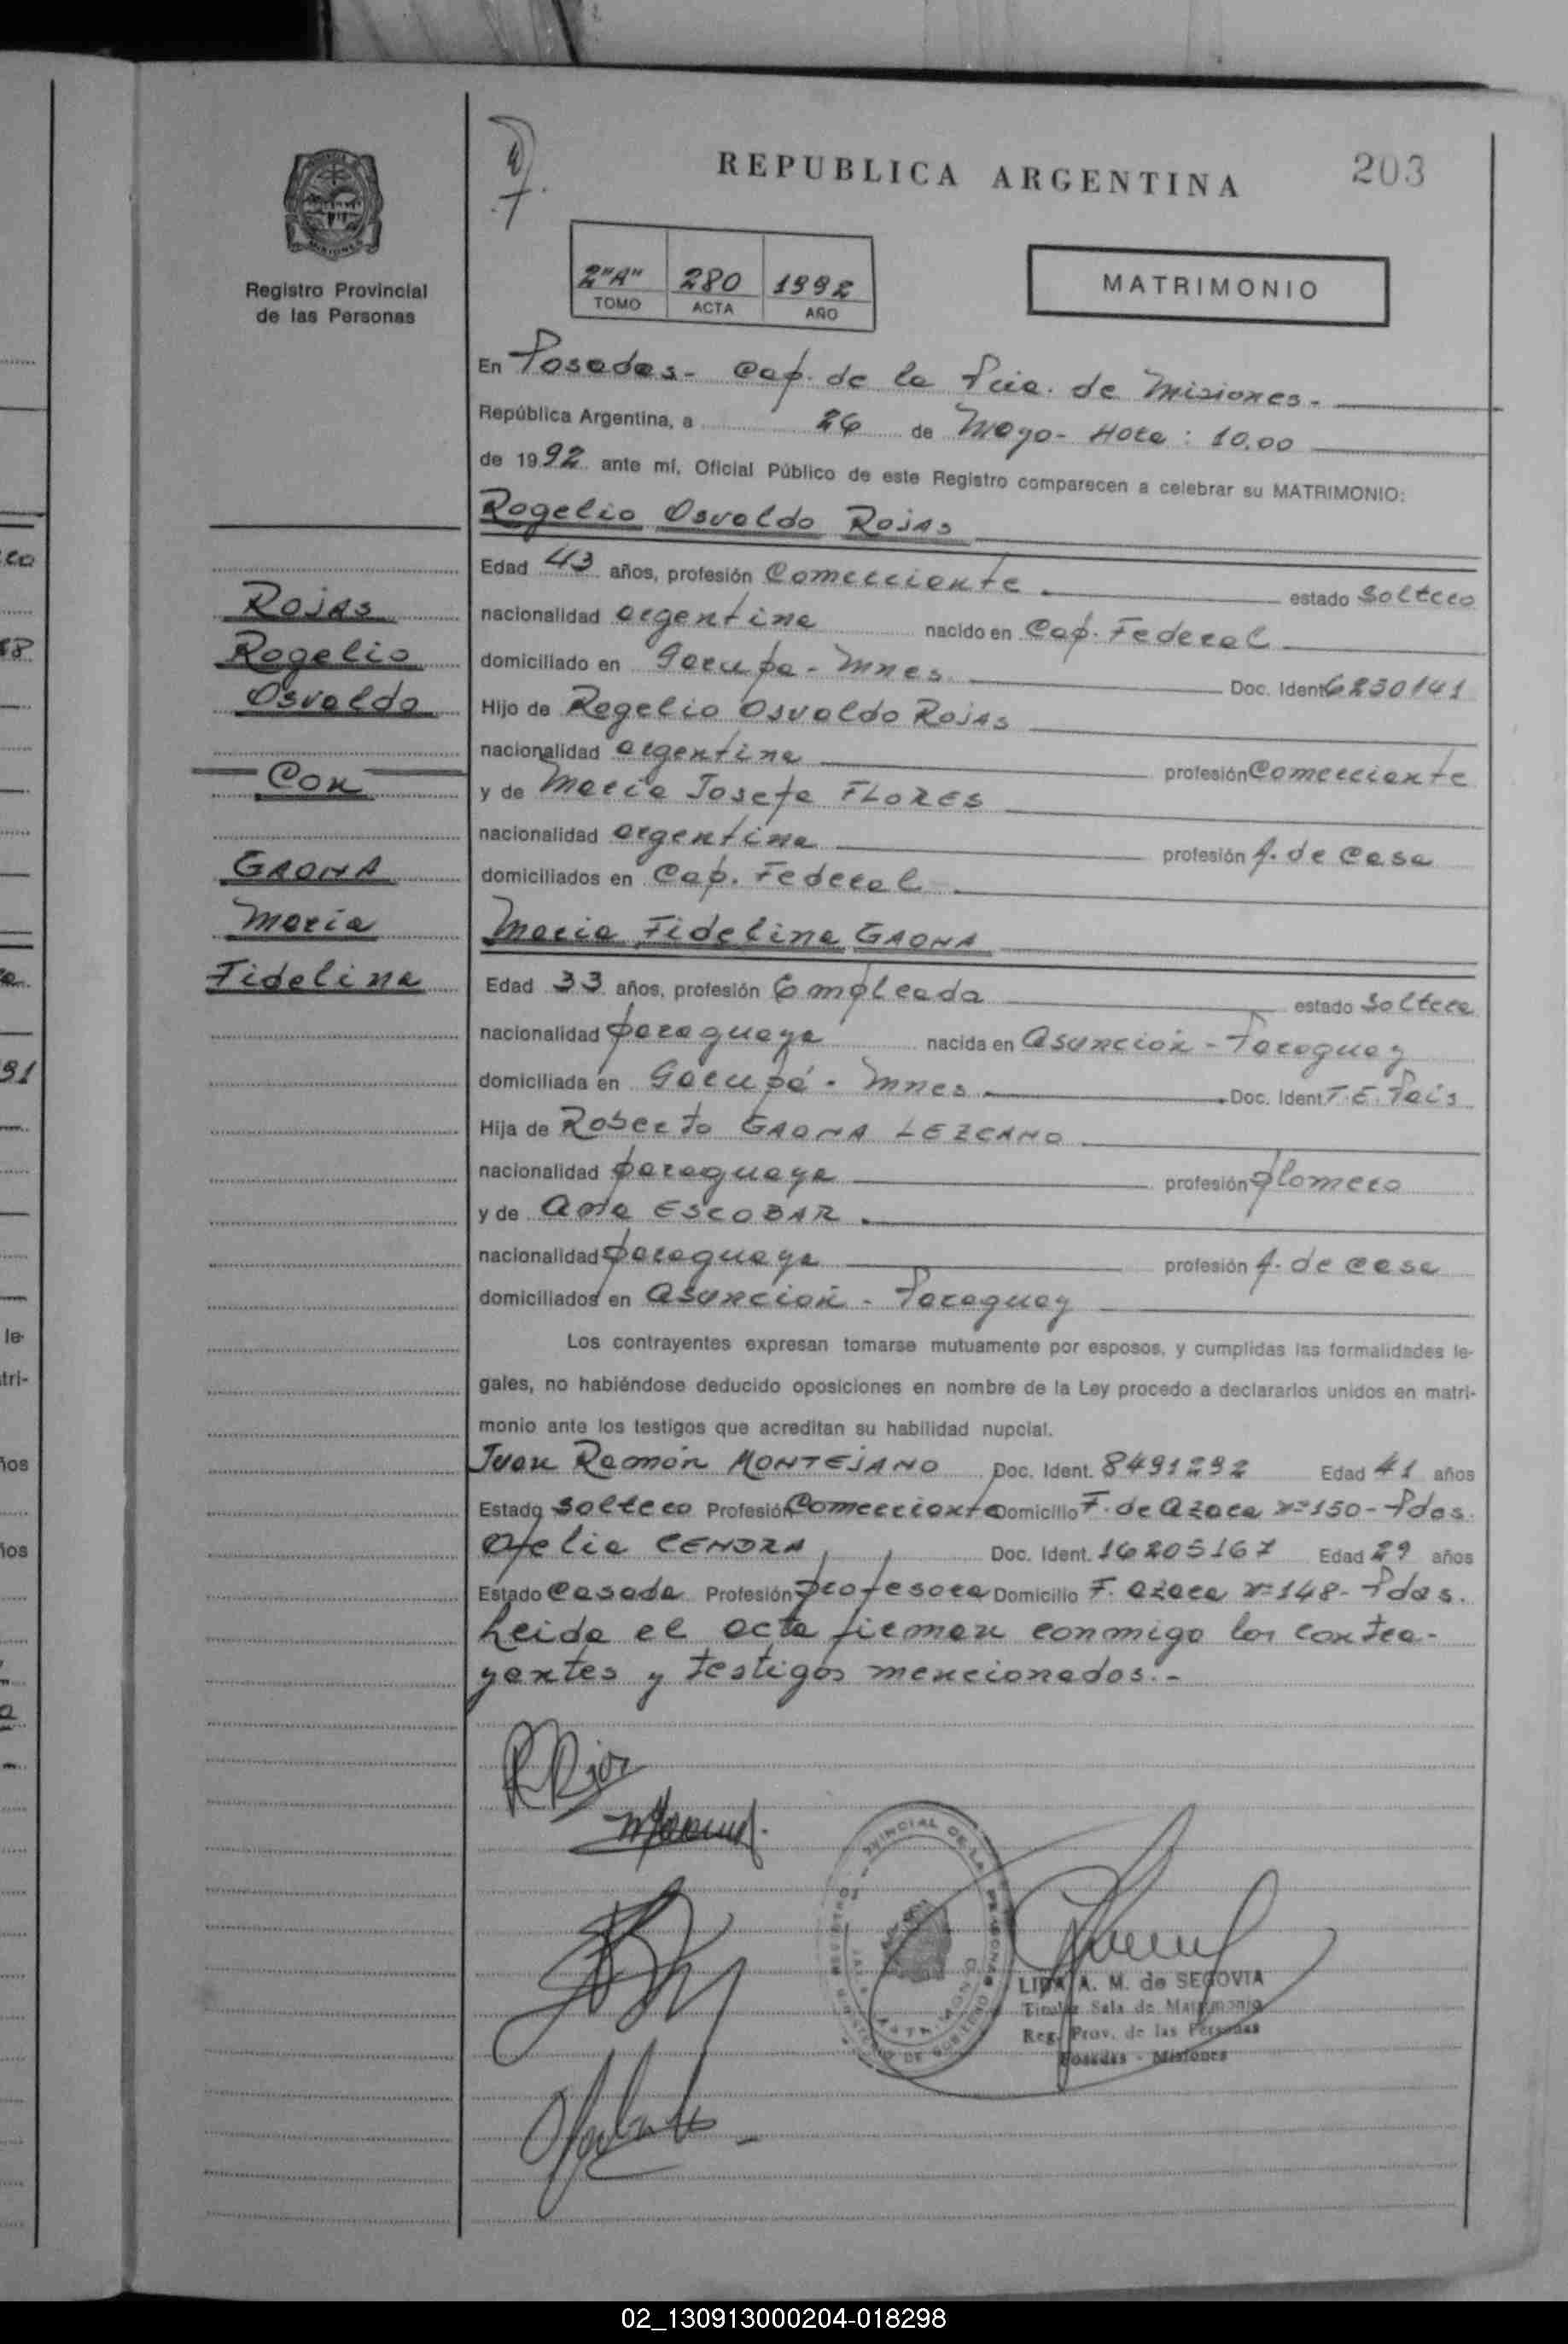 REPUBLICA ARGENTINA
203
Registro Provincial
de las Personas
2"A" 280 1992
TOMO ACTA AÑO
MATRIMONIO
En Posadas- Cap. de la Pcia. de Misiones.-
República Argentina, a 26 de Mayo- Hora: 10.00
de 1992 ante mí, Oficial Público de este Registro comparecen a celebrar su MATRIMONIO:
Rogelio Osvaldo ROJAS
Edad 43 años, profesión Comerciante estado soltero
nacionalidad argentina nacido en Cap. Federal
domiciliado en Garupa - Mnes. Doc. Ident. 6250141
Hijo de Rogelio Osvaldo ROJAS
nacionalidad argentina profesión Comerciante
y de María Josefa FLORES
nacionalidad argentina profesión A. de Casa
domiciliados en Cap. Federal
ROJAS
Rogelio
Osvaldo
Con
GAONA
María
Fidelina
María Fidelina GAONA
Edad 33 años, profesión Empleada estado Soltera
nacionalidad paraguaya nacida en Asunción - Paraguay
domiciliada en Garupá - Mnes Doc. Ident. T.E. País
Hija de Roberto GAONA LEZCANO
nacionalidad paraguaya profesión plomero
y de Ana ESCOBAR.
nacionalidad paraguaya profesión A. de Casa
domiciliados en Asunción - Paraguay
Los contrayentes expresan tomarse mutuamente por esposos, y cumplidas las formalidades le-
gales, no habiéndose deducido oposiciones en nombre de la Ley procedo a declararlos unidos en matri-
monio ante los testigos que acreditan su habilidad nupcial.
Juan Ramón MONTEJANO Doc. Ident. 8491292 Edad 41 años
Estado soltero Profesión Comerciante Domicilio F. de Azara nº 150 - Pdas.
Ofelia CENDRA Doc. Ident. 16205167 Edad 29 años
Estado Casada Profesión profesora Domicilio F. Azara nº 148 - Pdas.
Leida el acta firman conmigo los contra-
yentes y testigos mencionados.-
LIDA A. M. de SEGOVIA
Titular Sala de Matrimonio
Reg. Prov. de las Personas
Posadas - Misiones
02_130913000204-018298